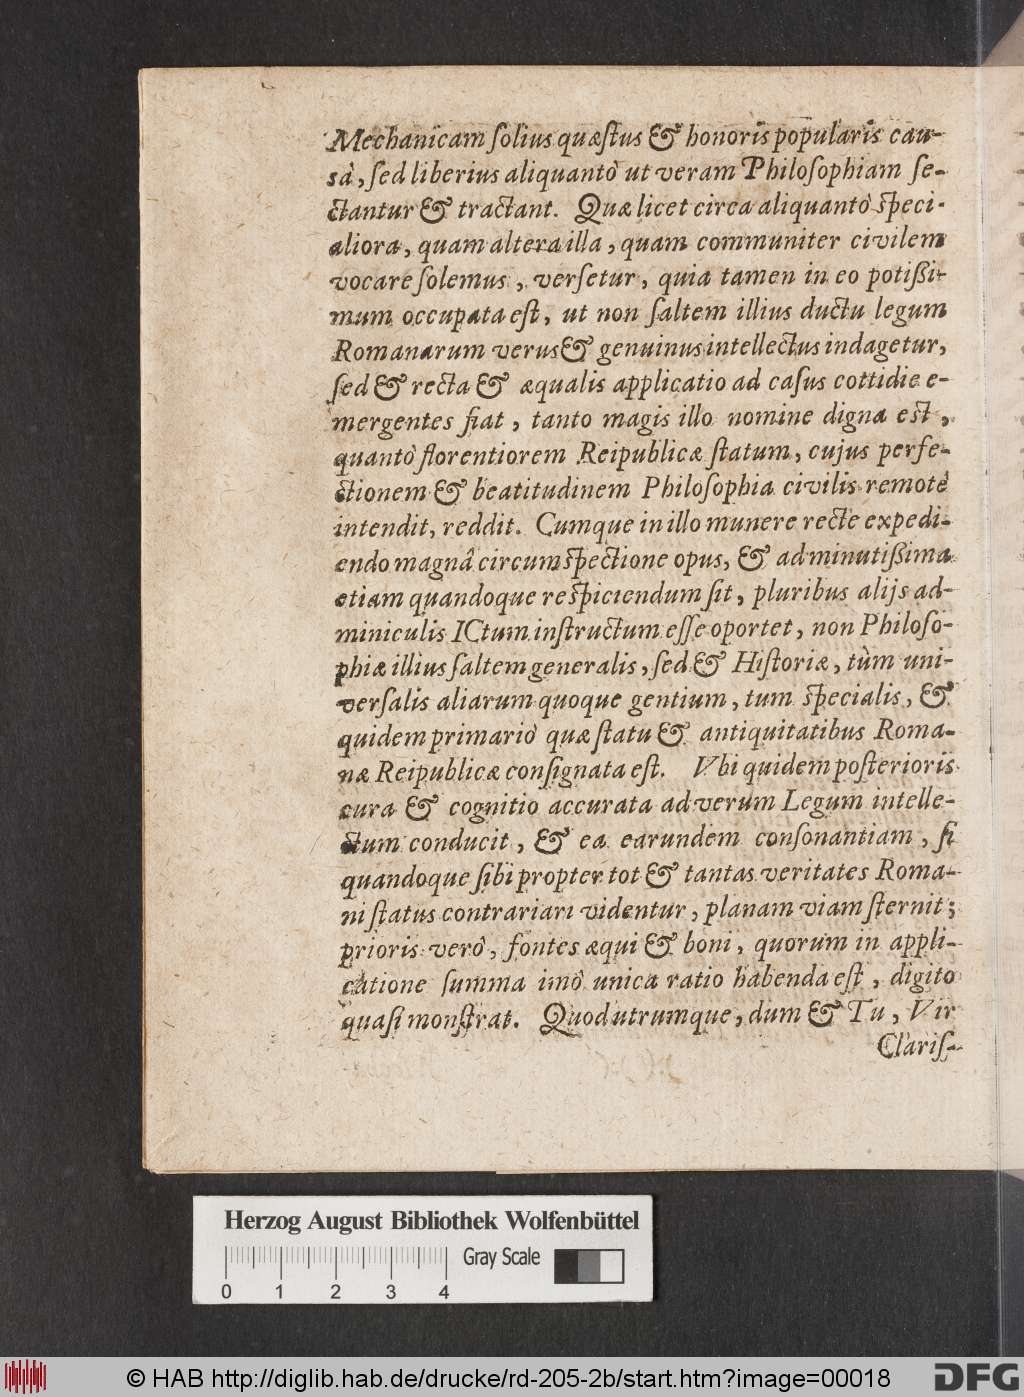 Mechanicam ſolius quæſtus & honoris popularis cau-
sâ, ſed liberius aliquantò ut veram Philoſophiam ſe-
ctantur & tractant. Quæ licet circa aliquantò ſpeci-
aliora, quam altera illa, quam communiter civilem
vocare ſolemus, verſetur, quia tamen in eo potißi-
mum occupata eſt, ut non ſaltem illius ductu legum
Romanarum verus & genuinus intellectus indagetur,
ſed & recta & æqualis applicatio ad caſus cottidie e-
mergentes fiat, tanto magis illo nomine digna eſt,
quantò florentiorem Reipublicæ ſtatum, cujus perfe-
ctionem & beatitudinem Philoſophia civilis remotè
intendit, reddit. Cumque in illo munere recte expedi-
endo magnâ circumſpectione opus, & ad minutißima
etiam quandoque reſpiciendum ſit, pluribus alijs ad-
miniculis ICtum inſtructum eſſe oportet, non Philoſo-
phiæ illius ſaltem generalis, ſed & Hiſtoriæ, tùm uni-
verſalis aliarum quoque gentium, tum ſpecialis, &
quidem primariò quæ ſtatu & antiquitatibus Roma-
næ Reipublicæ conſignata eſt. Vbi quidem poſterioris
cura & cognitio accurata ad verum Legum intelle-
ctum conducit, & ea earundem conſonantiam, ſi
quandoque ſibi propter tot & tantas veritates Roma-
ni ſtatus contrariari videntur, planam viam ſternit;
prioris verò, fontes æqui & boni, quorum in appli-
catione ſumma imò unica ratio habenda eſt, digito
quaſi monſtrat. Quod utrumque, dum & Tu, Vir
Clariſ-
Herzog August Bibliothek Wolfenbüttel
Gray Scale
0 1 2 3 4
© HAB http://diglib.hab.de/drucke/rd-205-2b/start.htm?image=00018
DFG
diglib